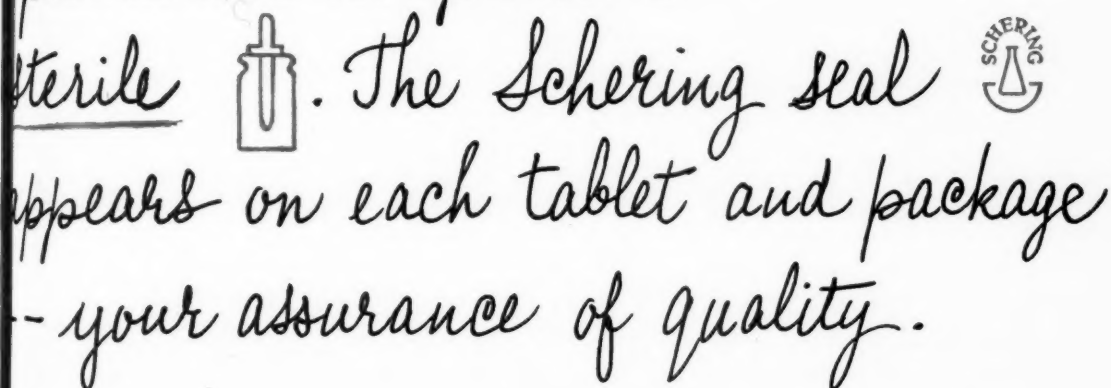 sterile . The Schering seal SCHERING
appears on each tablet and package
-- your assurance of quality.